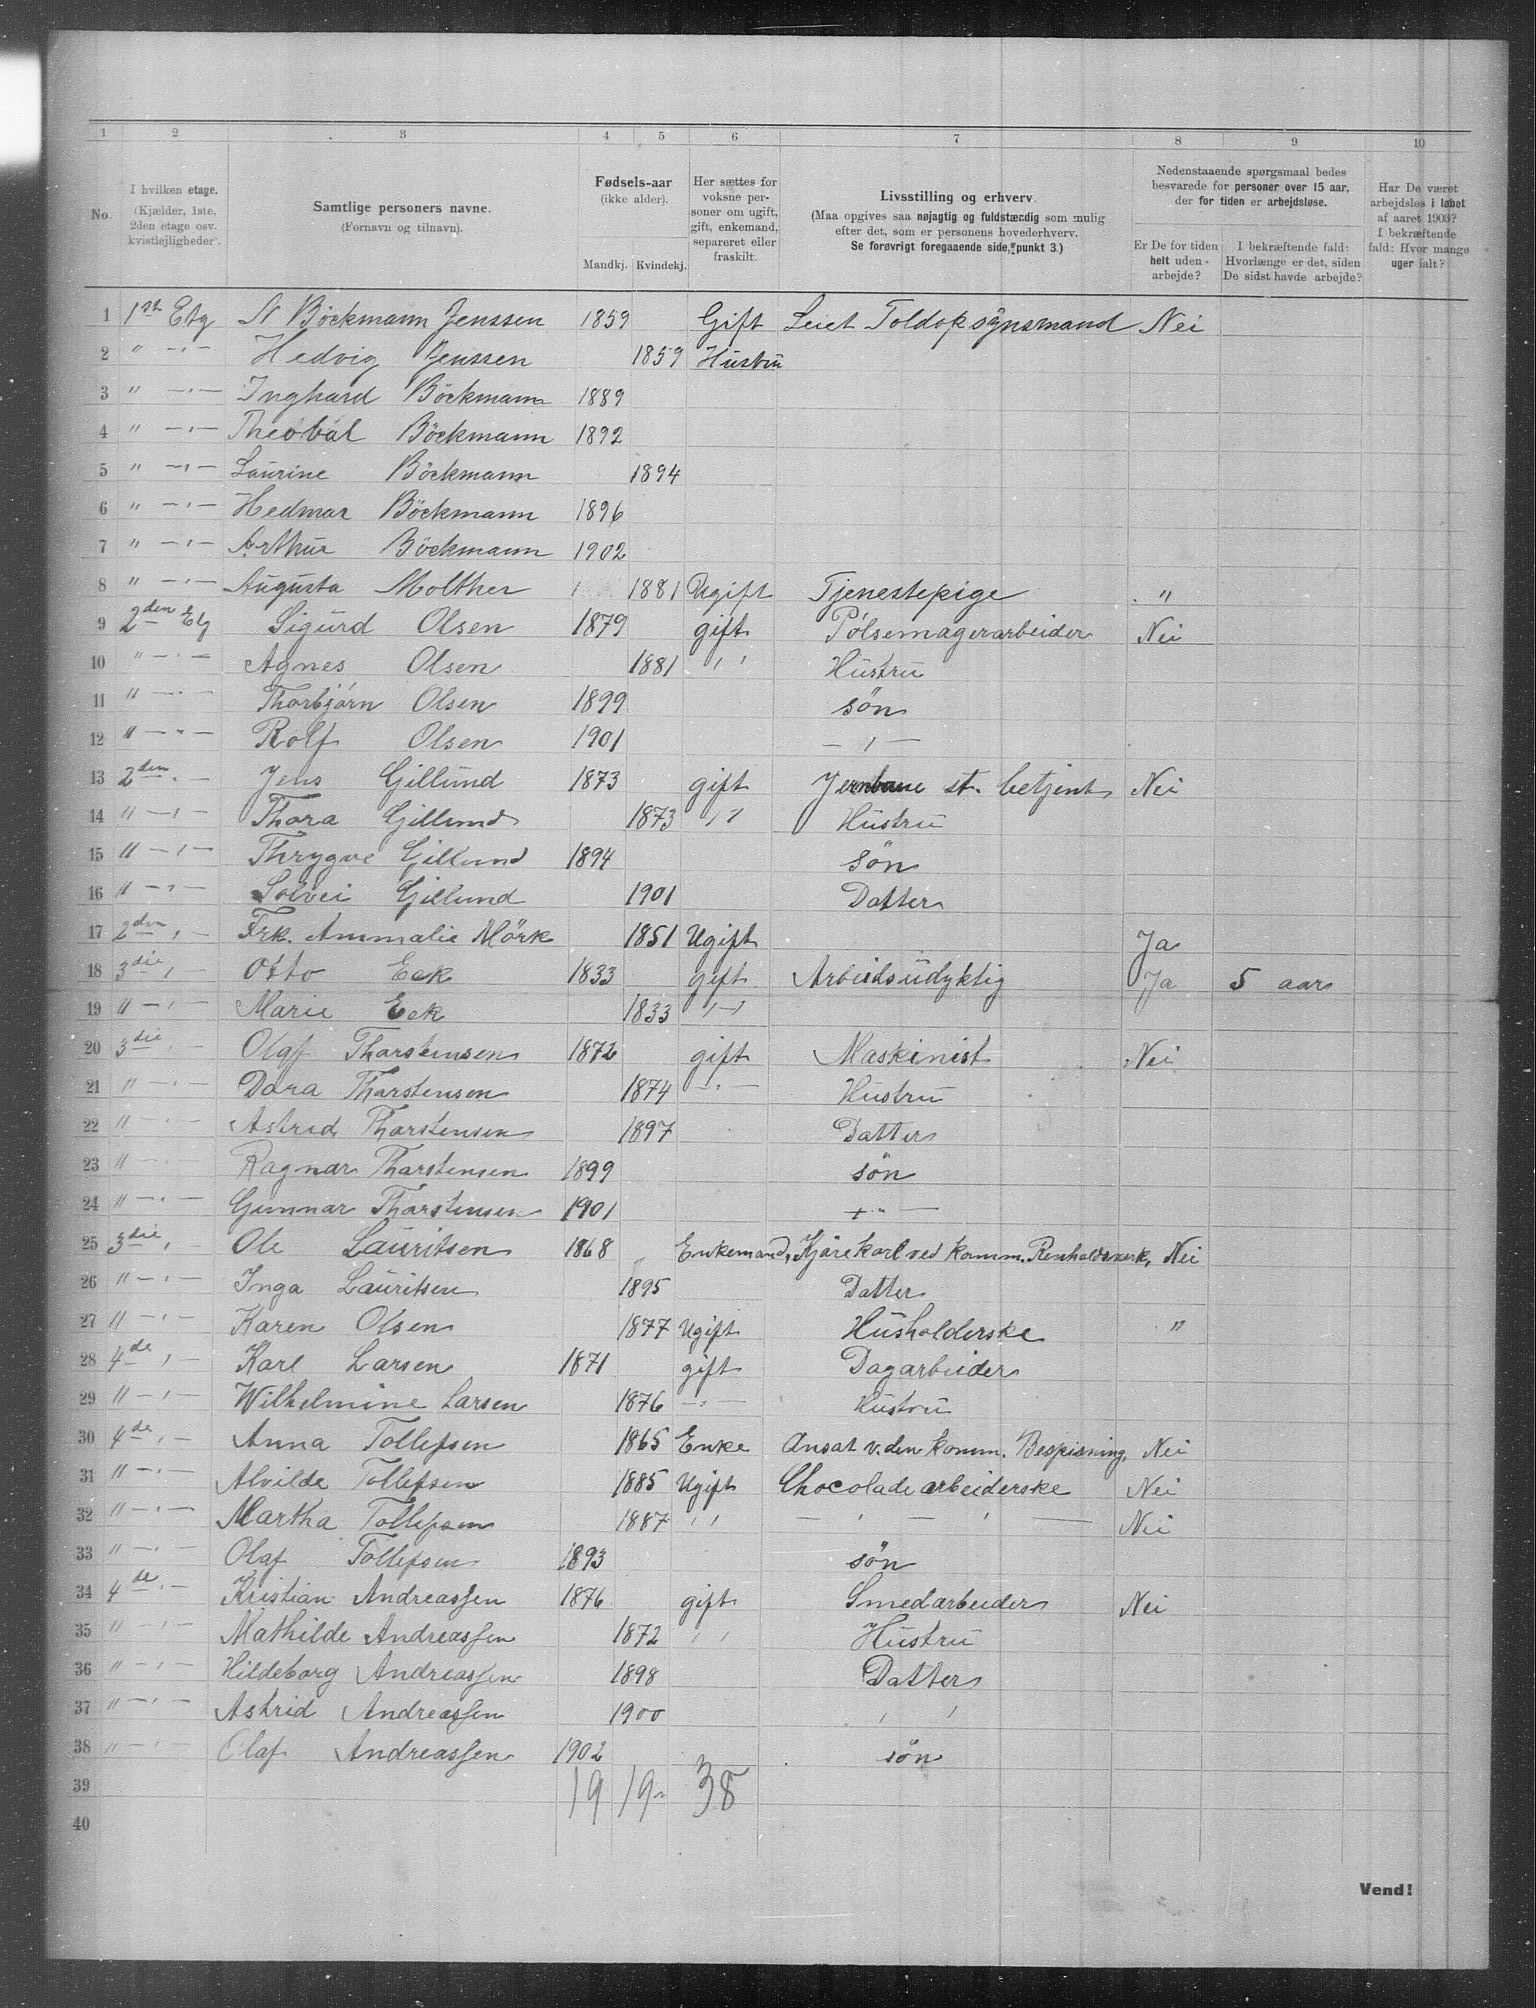 1 2 3 4 5 6 7 8 9 10
No. I hvilken etage. (Kjælder, 1ste, 2den etage osv. kvistlejligheder). Samtlige personers navne. (Fornavn og tilnavn). Fødsels-aar (ikke alder). Mandkj. Kvindekj. Her sættes for voksne personer om ugift, gift, enkemand, separeret eller fraskilt. Livsstilling og erhverv. (Maa opgives saa nøjagtig og fuldstændig som mulig efter det, som er personens hovederhverv. Se forøvrigt foregaaende side, punkt 3.) Nedenstaaende spørgsmaal bedes besvarede for personer over 15 aar, der for tiden er arbejdsløse. Er De for tiden helt uden arbejde? I bekræftende fald: Hvorlænge er det, siden De sidst havde arbejde? Har De været arbejdsløs i løbet af aaret 1903? I bekræftende fald: Hvor mange uger ialt?
1 1ste Etg N Böckmann Jenssen 1859 Gift Leiet Toldopsynsmand Nei
2 " -"- Hedvig Jenssen 1859 Hustru
3 " -"- Inghard Böckmann 1889
4 " -"- Theobal Böckmann 1892
5 " -"- Laurine Böckmann 1894
6 " -"- Hedmar Böckmann 1896
7 " -"- Arthur Böckmann 1902
8 " -"- Augusta Molther 1881 Ugift Tjenestepige "
9 2den Etg Sigurd Olsen 1879 gift Pölsemagerarbeider Nei
10 " -"- Agnes Olsen 1881 " Hustru
11 " -"- Thorbjörn Olsen 1899 sön
12 " -"- Rolf Olsen 1901 -"-
13 2den -"- Jens Gillund 1873 gift Jernbane st. betjent Nei
14 " -"- Thora Gillund 1873 " Hustru
15 " -"- Thrygve Gillund 1894 sön
16 " -"- Solvei Gillund 1901 Datter
17 2den -"- Frk. Ammalie Mörk 1851 Ugift Ja
18 3die -"- Otto Eek 1833 gift Arbeidsudyktig Ja 5 aar
19 " -"- Marie Eek 1833 -"-
20 3die -"- Olaf Thorstensen 1872 gift Maskinist Nei
21 " -"- Dora Thorstensen 1874 -"- Hustru
22 " -"- Astrid Thorstensen 1897 Datter
23 " -"- Ragnar Thorstensen 1899 sön
24 " -"- Gunnar Thorstensen 1901 -"-
25 3die -"- Ole Lauritsen 1868 Enkemand, Kjörekarl ved komm. Renholdsverk, Nei
26 " -"- Inga Lauritsen 1895 Datter
27 " -"- Karen Olsen 1877 Ugift Husholderske "
28 4de -"- Karl Larsen 1871 gift Dagarbeider
29 " -"- Wilhelmine Larsen 1876 -"- Hustru
30 4de -"- Anna Tollefsen 1865 Enke Ansat v. den komm. Bespisning, Nei
31 " -"- Alvilde Tollefsen 1885 Ugift Chocoladearbeiderske Nei
32 " -"- Martha Tollefsen 1887 " -"-"- Nei
33 " -"- Olaf Tollefsen 1893 sön
34 4de -"- Kristian Andreassen 1876 gift Smedarbeider Nei
35 " -"- Mathilde Andreassen 1872 " Hustru
36 " -"- Hildeborg Andreassen 1898 Datter
37 " -"- Astrid Andreassen 1900 "
38 " -"- Olaf Andreassen 1902 sön
39 19 19 38
40
Vend!